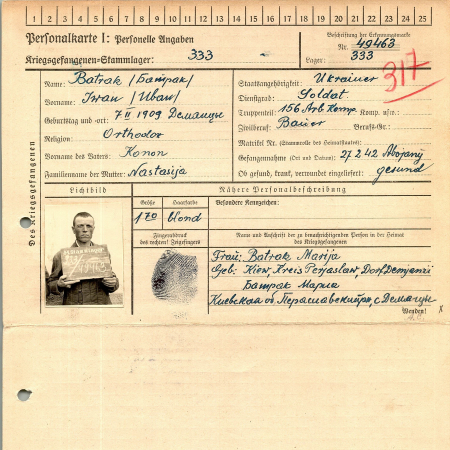 1 2 3 4 5 6 7 8 9 10 11 12 13 14 15 16 17 18 19 20 21 22 23 24 25
Personalkarte I: Personelle Angaben
Kriegsgefangenen-Stammlager: 333
Beschriftung der Erkennungsmarke
Nr. 49463
Lager: 333
317
Des Kriegsgefangenen
Name: Batrak /Батрак/
Vorname: Iwan /Иван/
Geburtstag und -ort: 7 II 1909 Демянцы
Religion: Orthodox
Vorname des Vaters: Konon
Familienname der Mutter: Nastasija
Staatsangehörigkeit: Ukrainer
Dienstgrad: Soldat
Truppenteil: 156 Arb Komp. Komp. usw.:
Zivilberuf: Bauer Berufs-Gr.:
Matrikel Nr. (Stammrolle des Heimatstaates):
Gefangennahme (Ort und Datum): 27 2 42
Ob gesund, krank, verwundet eingeliefert: gesund
Lichtbild
Nähere Personalbeschreibung
Größe
Haarfarbe
Besondere Kennzeichen:
170
blond
Fingerabdruck
des rechten! Zeigefingers
Name und Anschrift der zu benachrichtigenden Person in der Heimat
des Kriegsgefangenen
Frau: Batrak Marija
Geb: Kiew, Kreis Perjaslaw, Dorf Demjanzi
Батрак Мария
Киевская об. с Демянцы
Wenden!